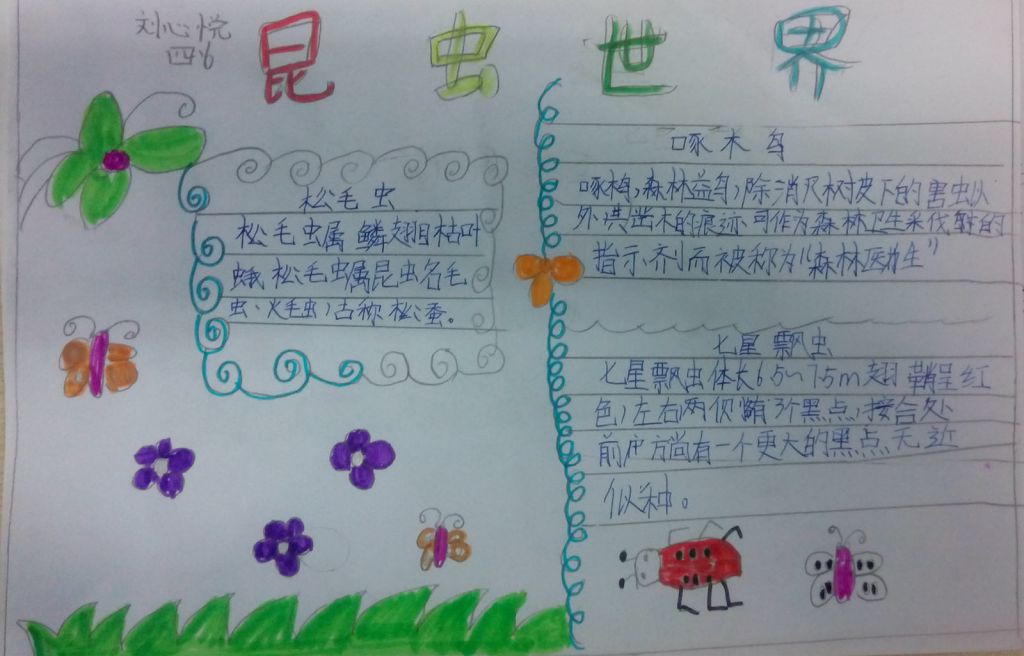 刘心悦
四6
昆虫世界
松毛虫
松毛虫属鳞翅目枯叶
蛾松毛虫属昆虫名毛
虫、火毛虫,古称松蚕。
啄木鸟
啄木鸟,森林益鸟,除消灭树皮下的害虫以
外,其凿木的痕迹可作为森林卫生采伐的
指示剂而被称为“森林医生”
七星瓢虫
七星瓢虫体长6.5~7.5m翅鞘呈红
色,左右两侧有3个黑点,接合处
前方尚有一个更大的黑点无近
似种。